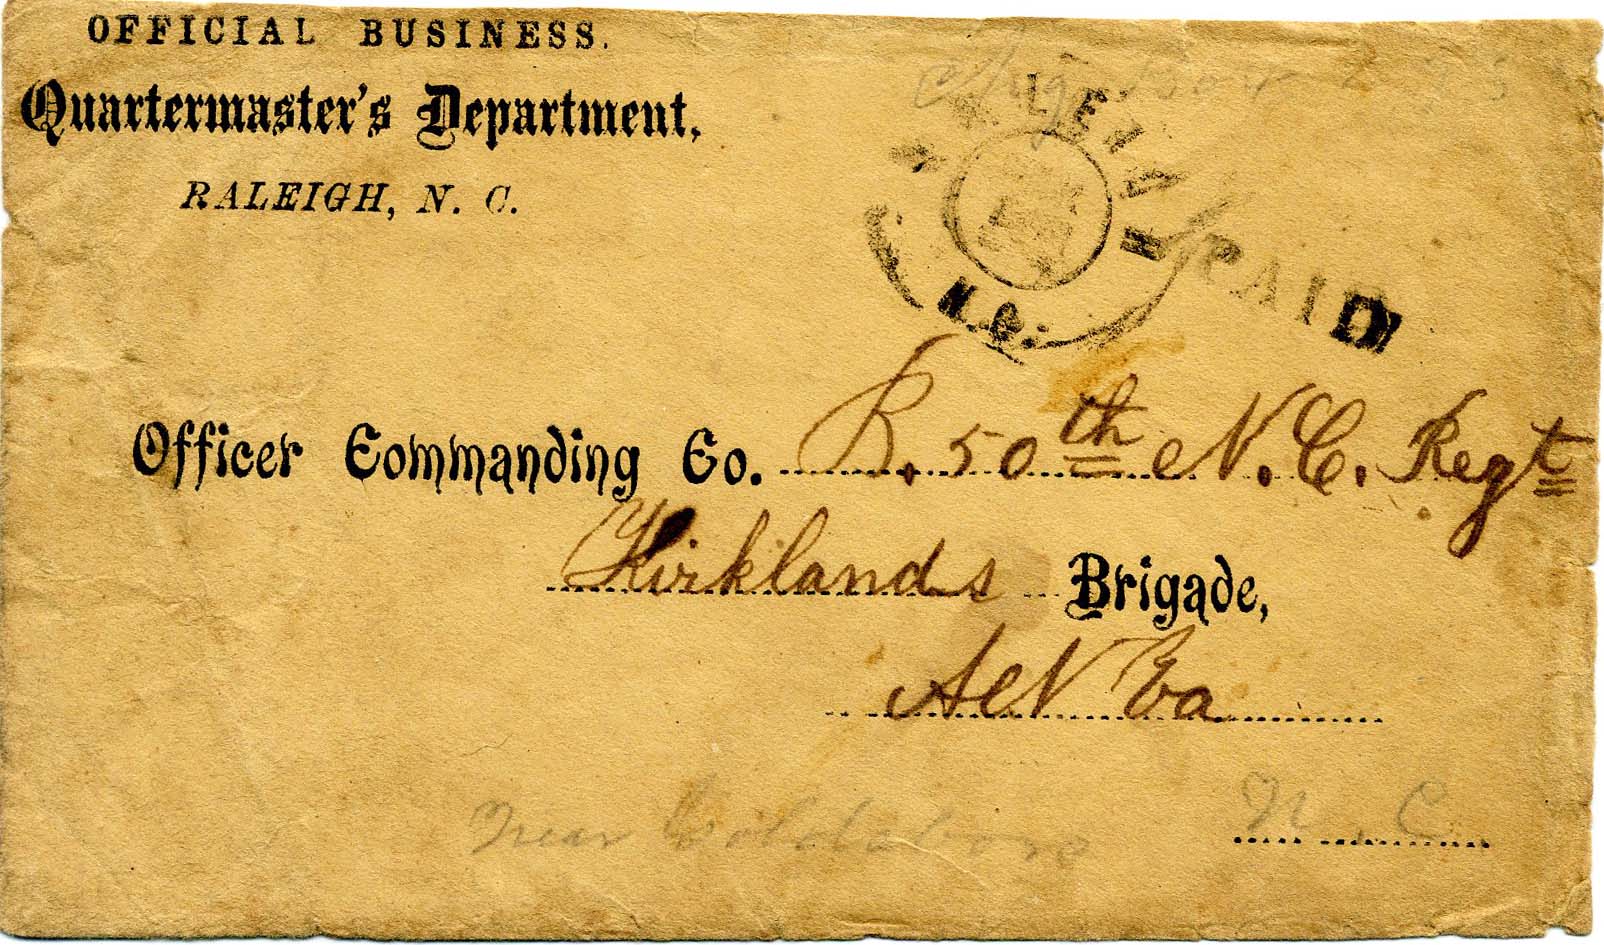 OFFICIAL BUSINESS.
Quartermaster's Department,
RALEIGH, N. C.
RALEIGH
N.C.
PAID
Officer Commanding Co. B. 50th N.C. Regt
Kirklands Brigade,
ANV Va
Near Goldsboro N. C.